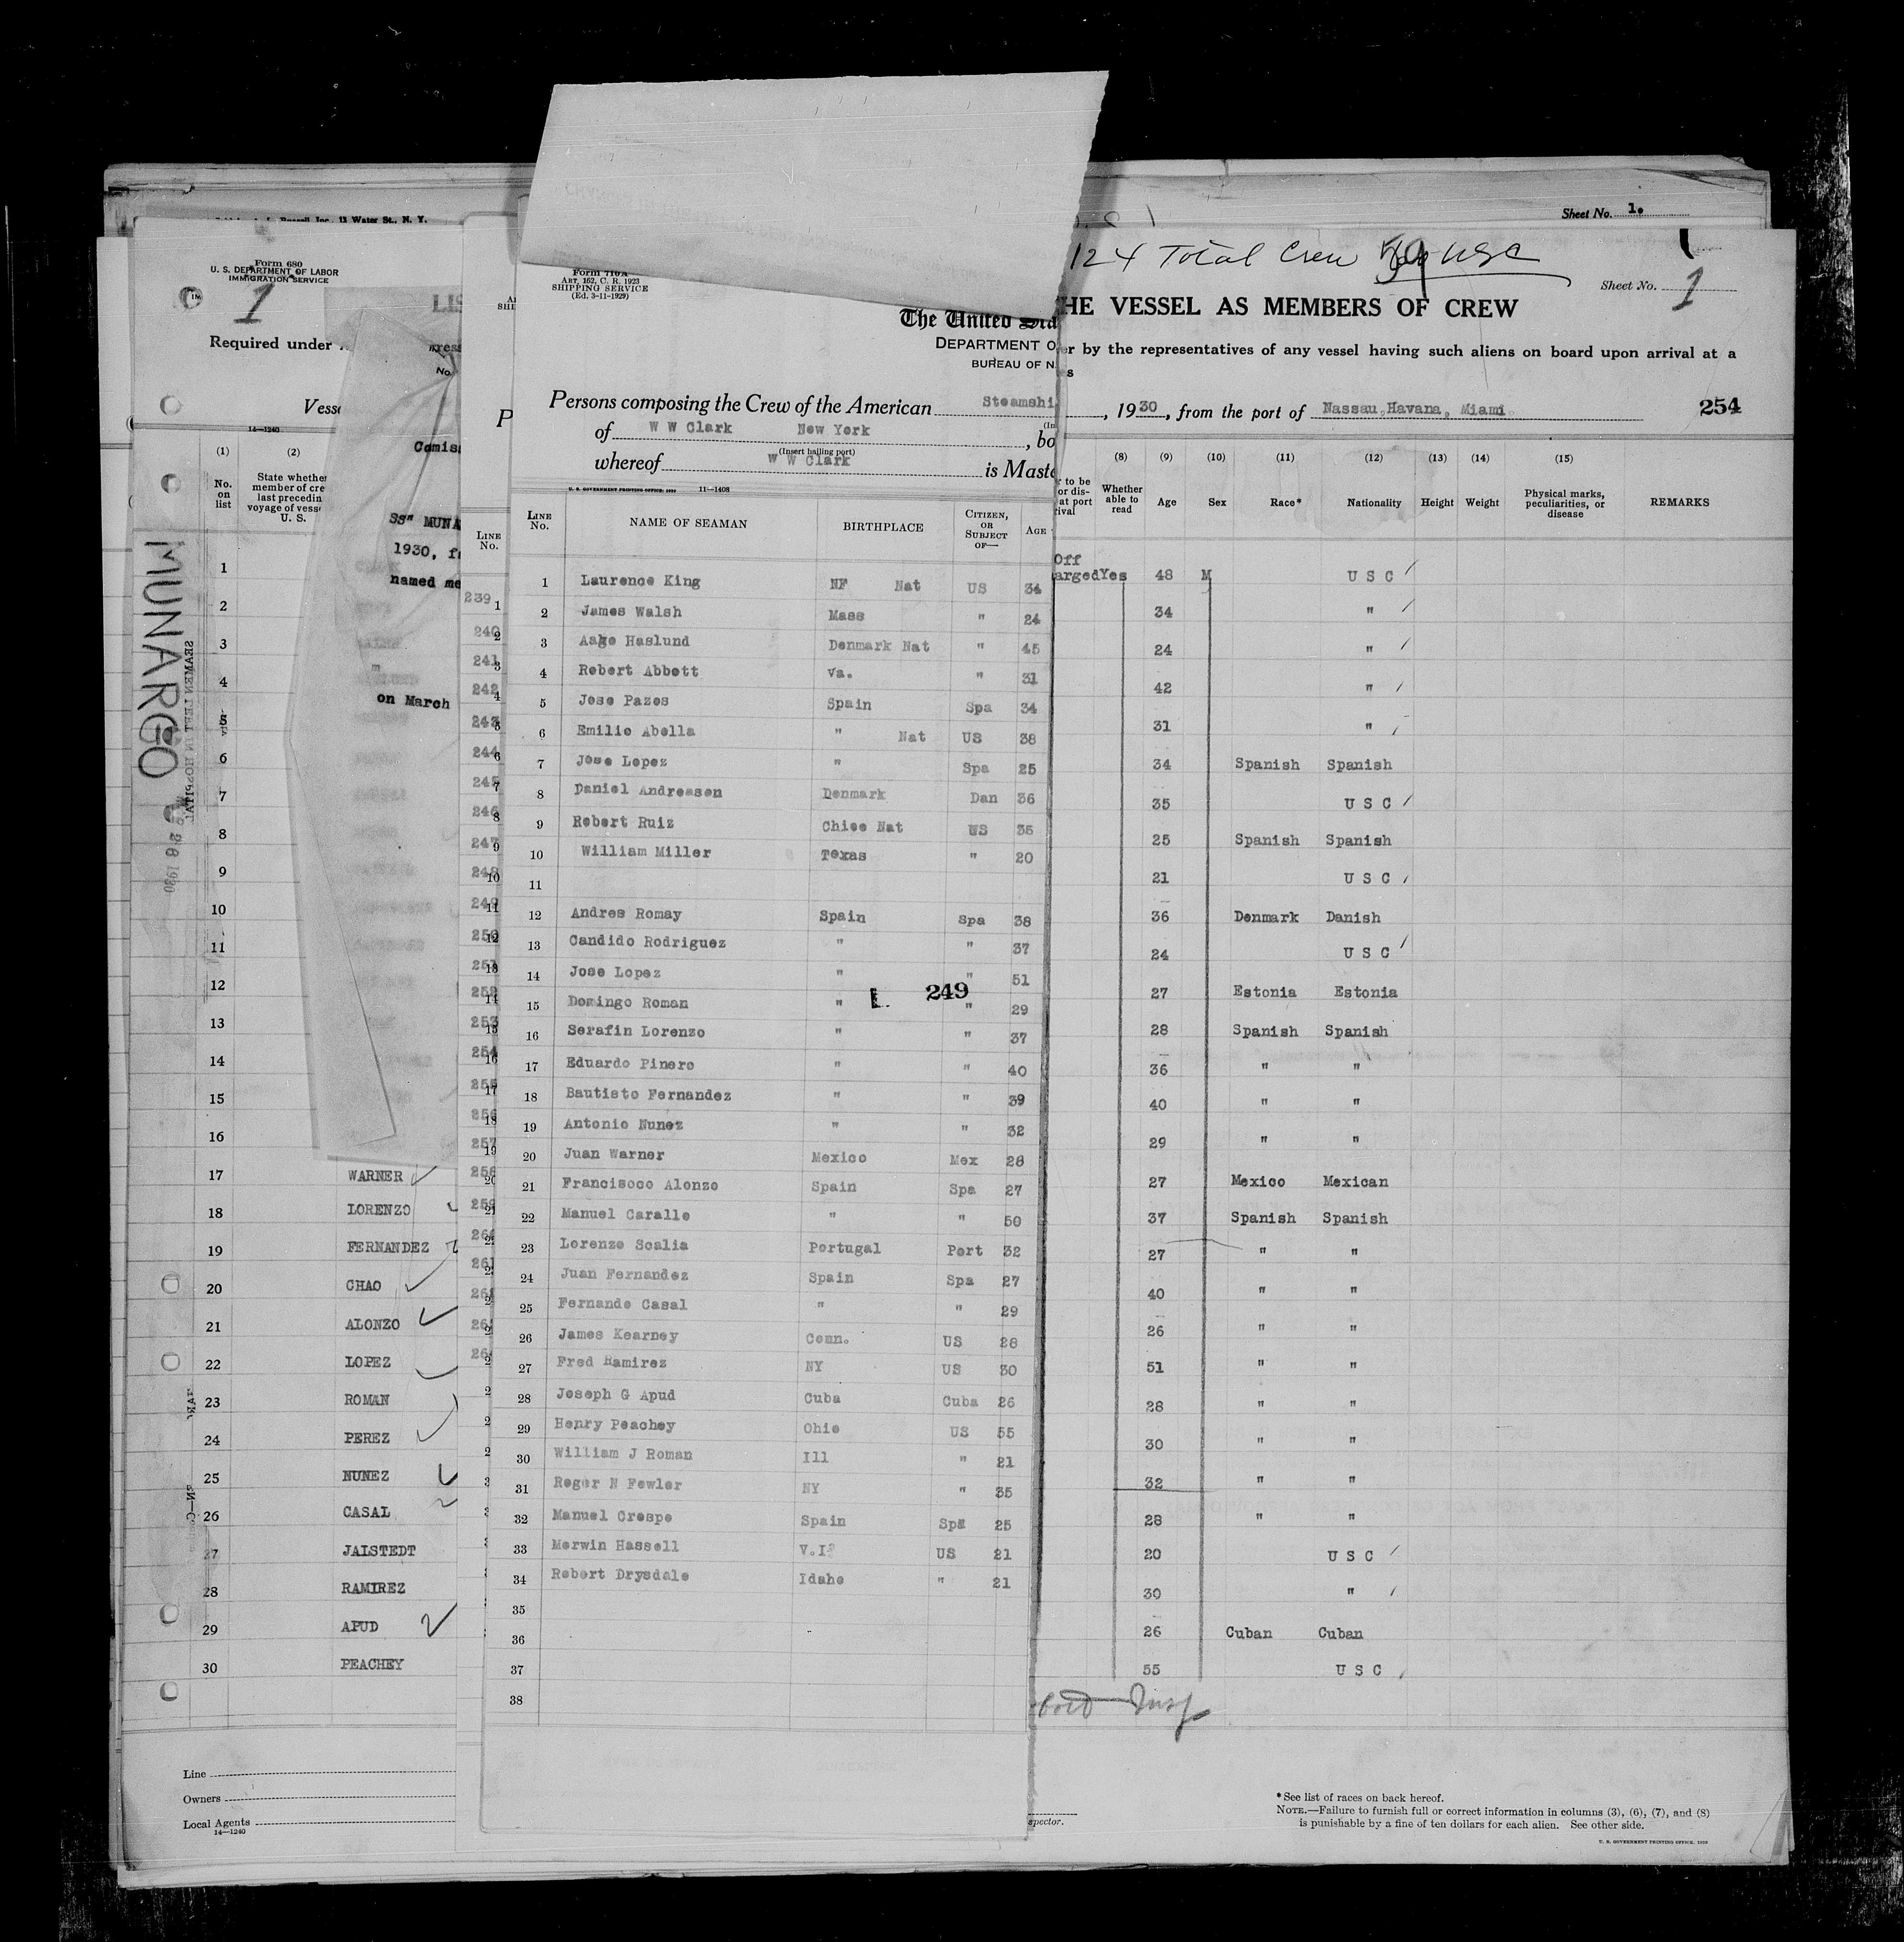 Sheet No. 1.
Inc. 13 Water St., N. Y.
124 Total Crew
Sheet No. 1
Form 680
U. S. DEPARTMENT OF LABOR
IMMIGRATION SERVICE
1
LIS
Required under
No.
Vess
14—1240
(1) (2)
No. on list
State whether
member of cre
last precedin
voyage of vess
U. S.
Comis
SS" MUNA
1930, f
named me
on March
MUNARGO
SEAMEN LEFT IN HOSPITAL
26 1930
1
2
3
4
5
6
7
8
9
10
11
12
13
14
15
16
17 WARNER
18 LORENZO
19 FERNANDEZ
20 CHAO
21 ALONZO
22 LOPEZ
23 ROMAN
24 PEREZ
25 NUNEZ
26 CASAL
27 JALSTEDT
28 RAMIREZ
29 APUD
30 PEACHEY
Line
Owners
Local Agents
14—1240
P
LINE No.
239 1
240 2
241 3
242 4
243 5
244 6
245 7
246 8
247 9
248 10
249 11
250 12
251 13
252 14
253 15
254 16
255 17
256 18
257 19
Form 710A
ART. 162, C. R. 1923
SHIPPING SERVICE
(Ed. 3-11-1929)
The United Sta
DEPARTMENT O
BUREAU OF N
Persons composing the Crew of the American Steamshi
of W W Clark New York , bo
(Insert hailing port)
whereof W W Clark is Maste
U. S. GOVERNMENT PRINTING OFFICE: 1929 11—1408
LINE No. NAME OF SEAMAN BIRTHPLACE CITIZEN, OR SUBJECT OF— AGE
1 Laurence King NF Nat US 34
2 James Walsh Mass " 24
3 Aage Haslund Denmark Nat " 45
4 Robert Abbott Va. " 31
5 Jose Pazos Spain Spa 34
6 Emilio Abella " Nat US 38
7 Jose Lopez " Spa 25
8 Daniel Andreasen Denmark Dan 36
9 Robert Ruiz Chile Nat US 35
10 William Miller Texas " 20
11
12 Andres Romay Spain Spa 38
13 Candido Rodriguez " " 37
14 Jose Lopez " " 51
249
15 Domingo Roman " " 29
16 Serafin Lorenzo " " 37
17 Eduardo Pinero " " 40
18 Bautisto Fernandez " " 39
19 Antonio Nunez " " 32
20 Juan Warner Mexico Mex 28
21 Francisoco Alonzo Spain Spa 27
22 Manuel Caralle " " 50
23 Lorenzo Scalia Portugal Port 32
24 Juan Fernandez Spain Spa 27
25 Fernando Casal " " 29
26 James Kearney Conn. US 28
27 Fred Ramirez NY US 30
28 Joseph G Apud Cuba Cuba 26
29 Henry Peachey Ohio US 55
30 William J Roman Ill " 21
31 Roger N Fowler NY " 35
32 Manuel Crespo Spain Spa 25
33 Merwin Hassell V.I. US 21
34 Robert Drysdale Idaho " 21
35
36
37
38
HE VESSEL AS MEMBERS OF CREW
er by the representatives of any vessel having such aliens on board upon arrival at a
s
, 1930, from the port of Nassau, Havana, Miami 254
(8) (9) (10) (11) (12) (13) (14) (15)
r to be
or dis-
at port
rival
Whether able to read Age Sex Race* Nationality Height Weight Physical marks, peculiarities, or disease REMARKS
Off
arged Yes 48 M U S C
34 "
24 "
42 "
31 "
34 Spanish Spanish
35 U S C
25 Spanish Spanish
21 U S C
36 Denmark Danish
24 U S C
27 Estonia Estonia
28 Spanish Spanish
36 " "
40 " "
29 " "
27 Mexico Mexican
37 Spanish Spanish
27 " "
40 " "
26 " "
51 " "
28 " "
30 " "
32 " "
28 " "
20 U S C
30 "
26 Cuban Cuban
55 U S C
spector.
*See list of races on back hereof.
NOTE.—Failure to furnish full or correct information in columns (3), (6), (7), and (8)
is punishable by a fine of ten dollars for each alien. See other side.
U. S. GOVERNMENT PRINTING OFFICE, 1929